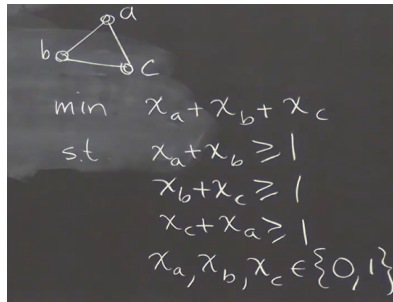 a
b
c
min x_a + x_b + x_c
s.t. x_a + x_b ≥ 1
x_b + x_c ≥ 1
x_c + x_a ≥ 1
x_a, x_b, x_c ∈ {0, 1}